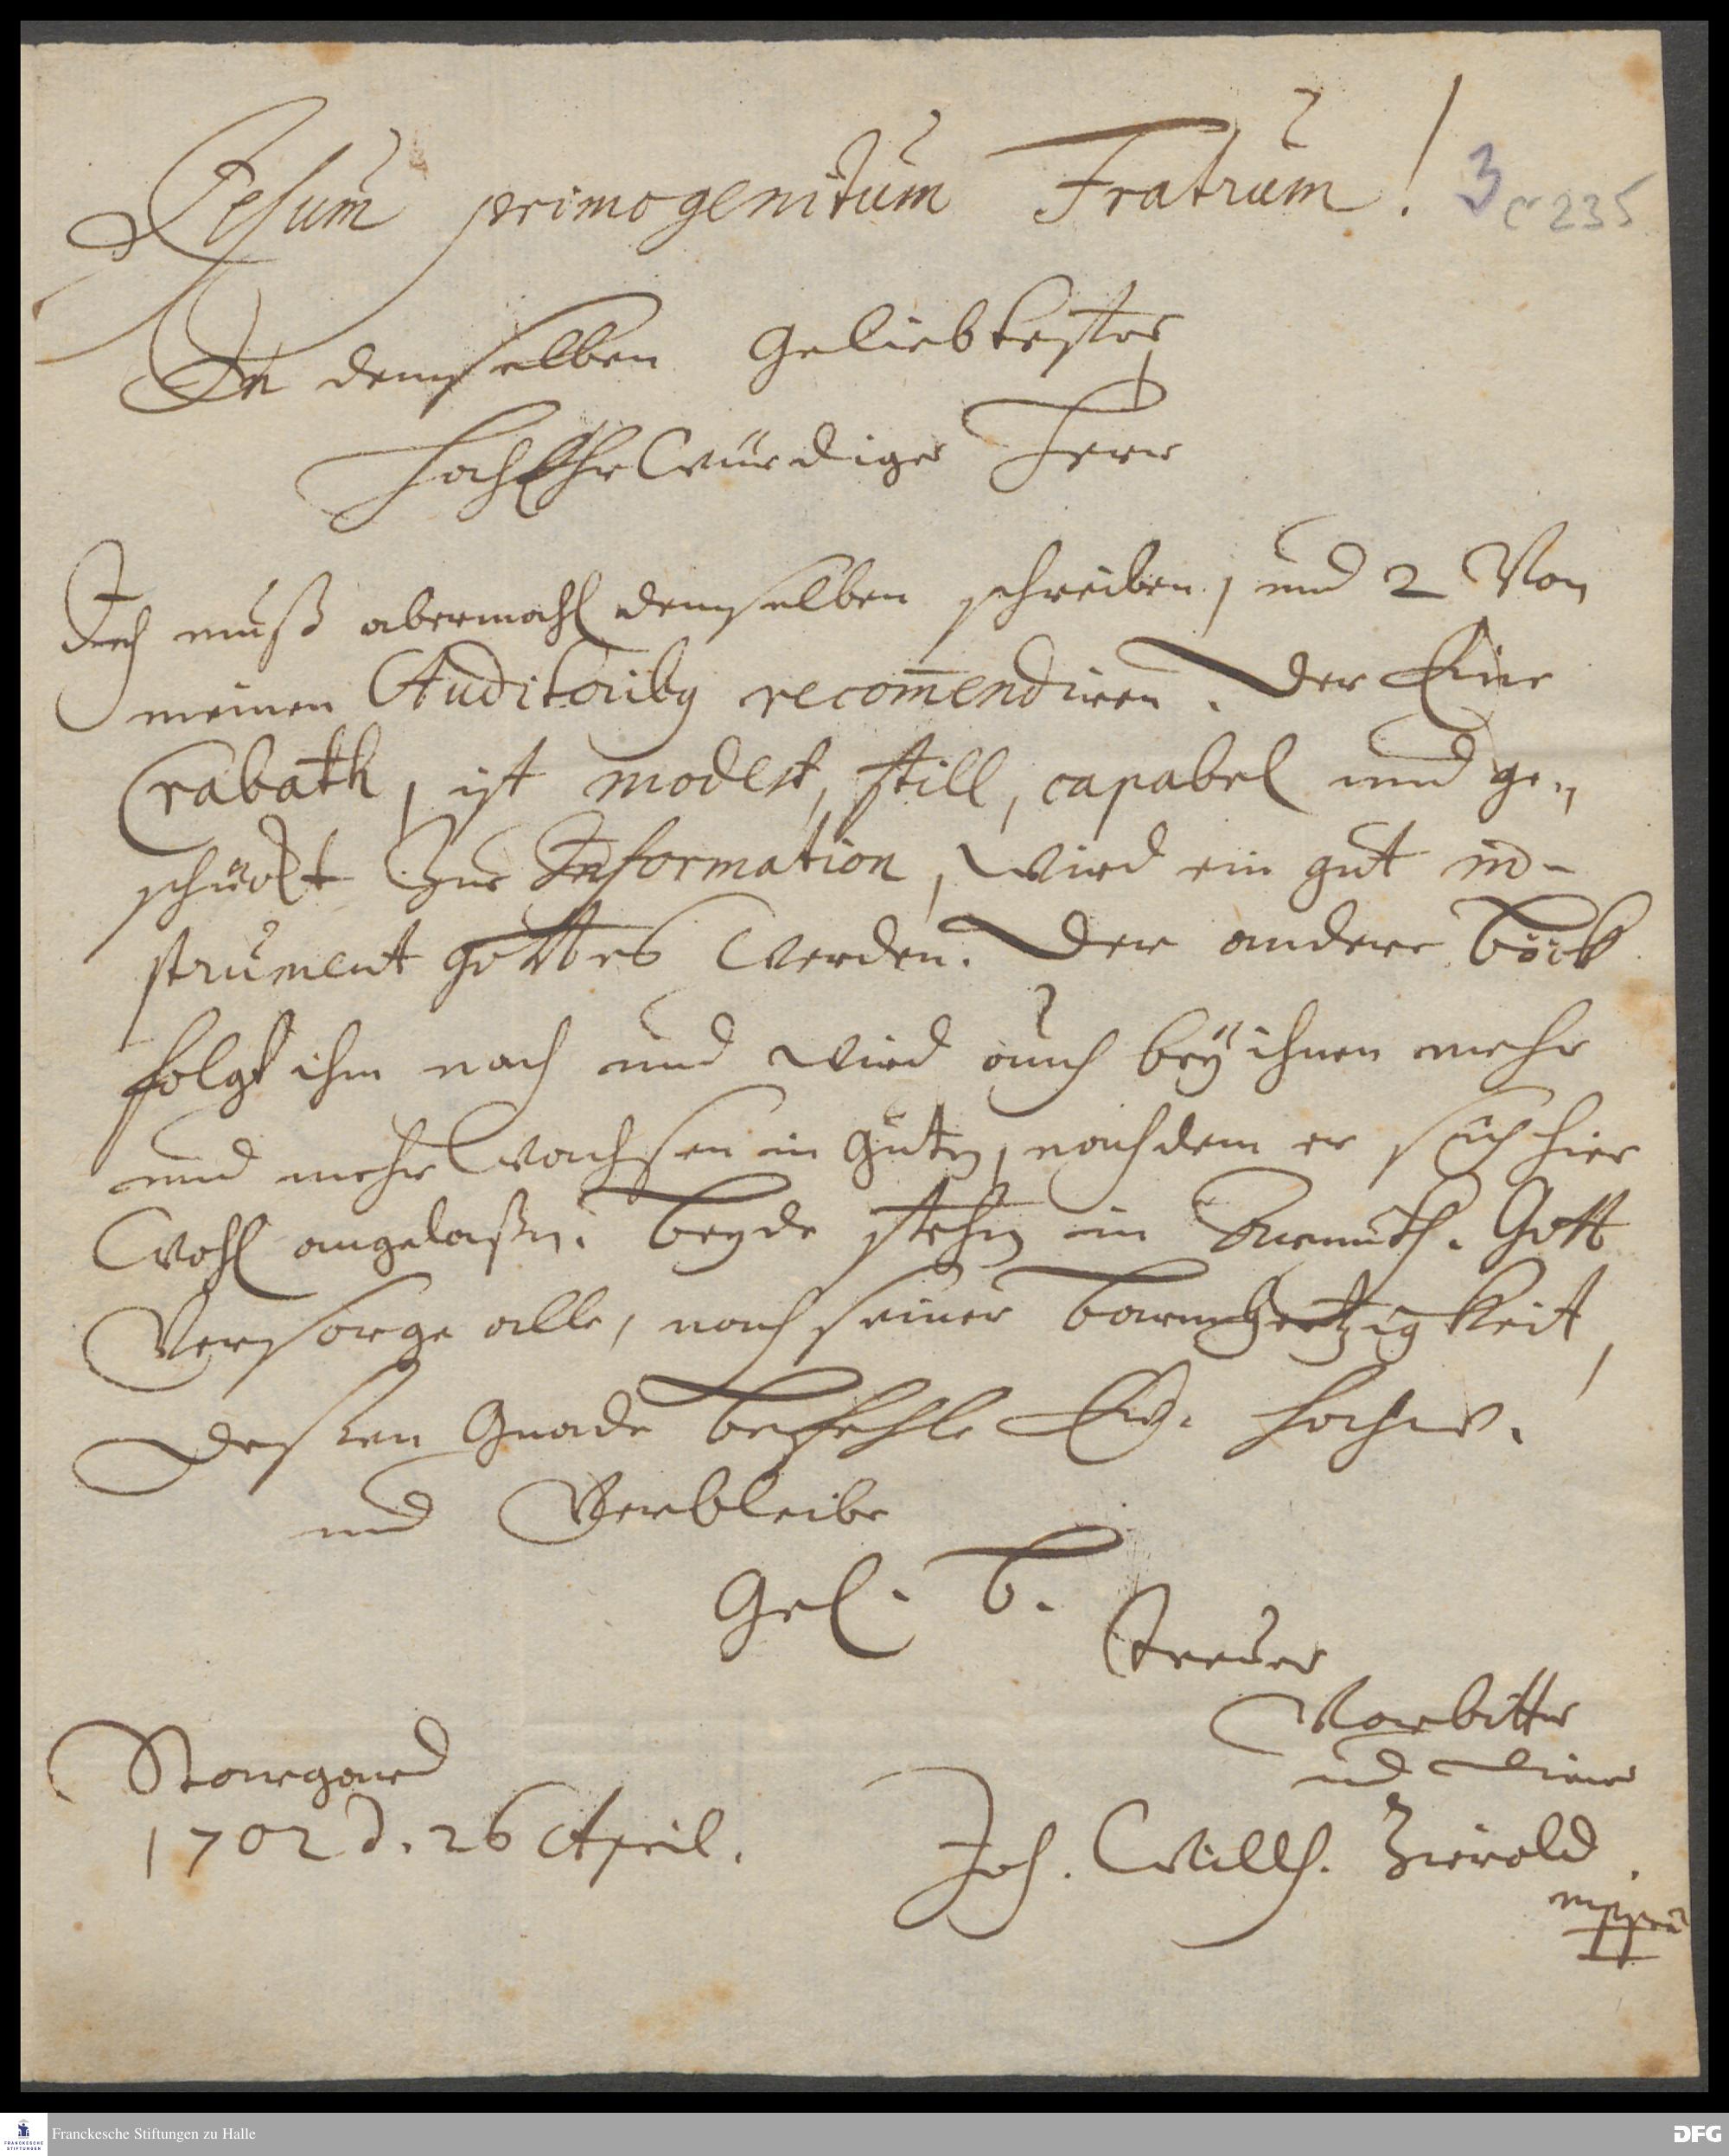 Jesum primogenitum Fratrum!
3
C 235
In demselben Geliebtester
HochEhrwürdiger Herr
Ich muß abermahl demselben schreiben, und 2 Von
meinen Auditoribus recom̅endiren. Der Eine
Crabath, ist modest, still, capabel und ge-
schückt Zur Information, wird ein gut in-
strument Gottes werden. Der andere Böck
folgt ihm nach und wird auch bey ihnen mehr
und mehr wachsen in Guten, nachdem er sich hier
wohl angelaßen. Beyde stehen in Armuth. Gott
Versorge alle, nach seiner Barmhertzigkeit,
Dessen Gnade Befehle Ew. Hochw.
und Verbleibe
Gel. B.
Treuer
Vorbitter
ud Diener
Stargard
1702 d. 26 April.
Joh. Willh. Zierold.
mppria
Franckesche Stiftungen zu Halle
FRANCKESCHE
STIFTUNGEN
DFG